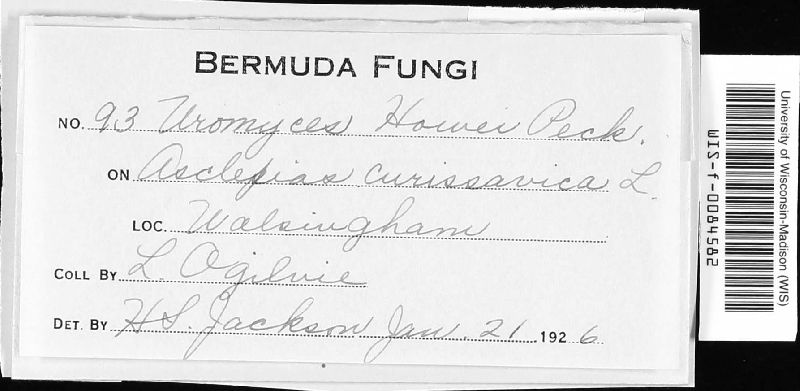 BERMUDA FUNGI
NO. 93 Uromyces Howei Peck.
ON Asclepias curissavica L.
LOC. Walsingham
COLL BY L. Ogilvie
DET. BY H.S. Jackson Jan. 21 1926
University of Wisconsin-Madison (WIS)
WIS-f-0084582